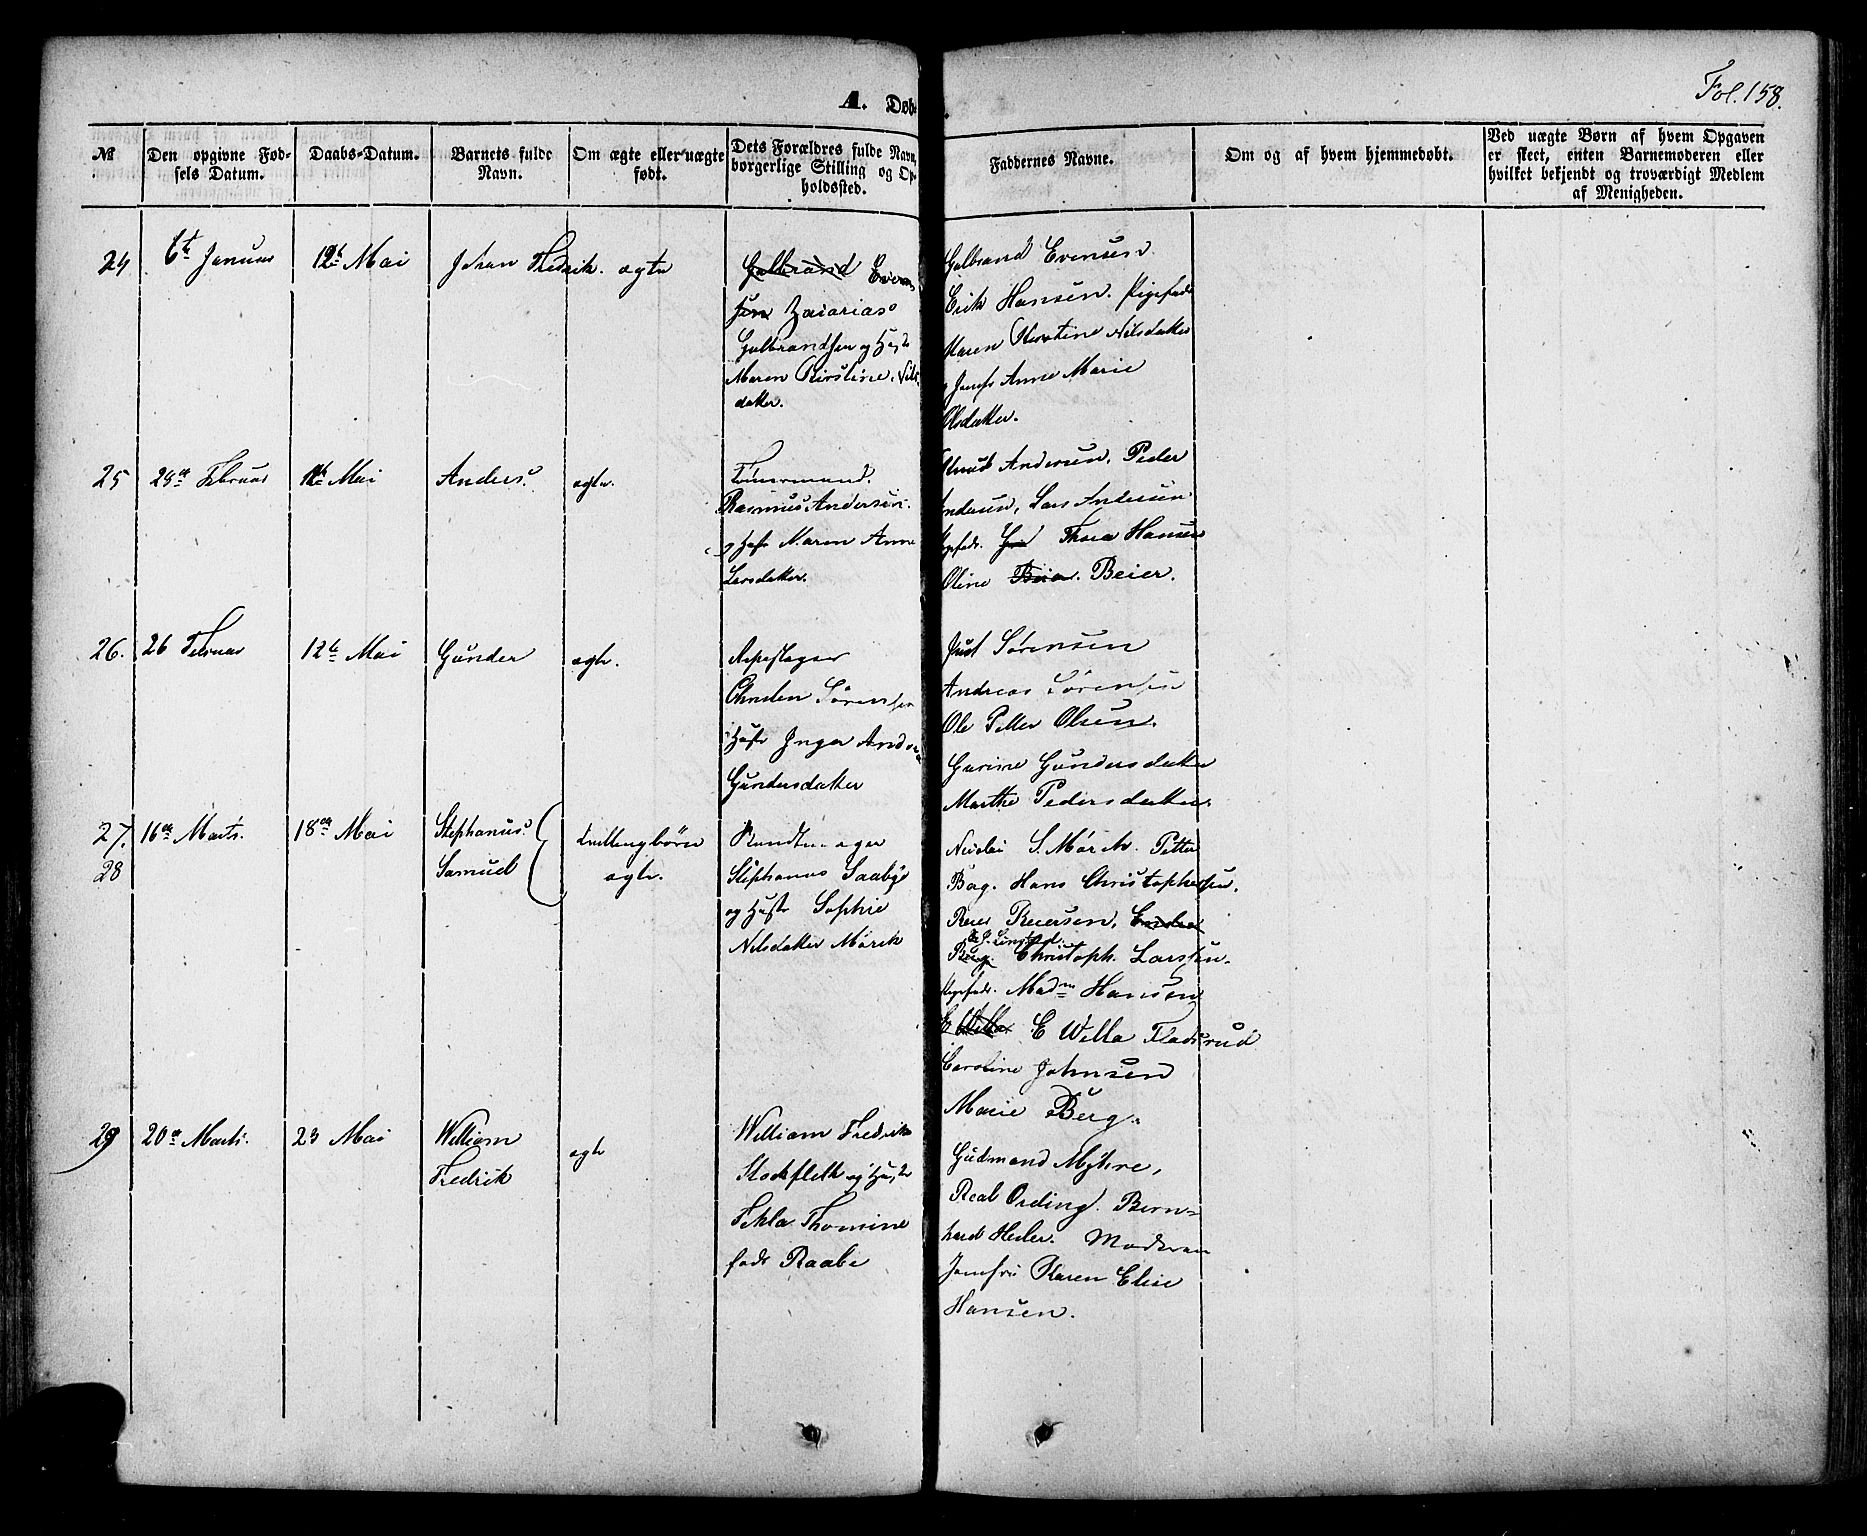 Fol. 158.
A. Døb
№
Den opgivne Fød-
sels Datum.
Daabs-Datum.
Barnets fulde
Navn.
Om ægte eller uægte
født.
Dets Forældres fulde Navn,
borgerlige Stilling og Op-
holdssted.
Faddernes Navne.
Om og af hvem hjemmedøbt.
Ved uægte Børn af hvem Opgaven
er skeet, enten Barnemoderen eller
hvilket bekjendt og troværdigt Medlem
af Menigheden.
24
6te Januar
12te Mai
Johan Fredrik.
ægte
Gulbrand Even
Zacarias
Gulbrandsen og Hustr
Maren Kirstine Nils
datter.
Gulbrand Evensen.
Erik Hansen. Pigefad
Maren Kirstine Nilsdatter
Jomfr Anne Marie
Olsdatter.
25
28de Februar
12te Mai
Anders.
ægte.
Tømermand.
Rasmus Andersen.
og Hustr Maren Anne
Larsdatter.
Knud Andersen. Peder
Andersen, Lars Andersen.
Thora Hansen
Oline Beier. Beier.
26.
26 Februar
12te Mai
Gunder
ægte.
Repslager
Christen Sørensen
Hustr Inger Andrea
Gundersdatter
Just Sørensen
Andreas Sørensen
Ole Petter Olsen.
Gurine Gundersdatter
Marthe Pedersdatter.
27.
28
16de Marts.
18de Mai
Stephanus.
Samuel
tvillingbørn
ægte.
Stephanus Saabye
og Hustr Sophie
Nilsdatter Mørch
Nicolai S. Mørch. Petter
Bag. Hans Christophersen.
Reier Reiersen.
Berg. Christoph. Larsen.
Madm Hansen
E Wella E Wella Fladsrud
Caroline Johnsen
Marie Berg.
29
20de Marts.
23 Mai
William
Fredrik
ægte
William Fredrik
Stockfleth og Hustr
Tekla Thomine
født Raabe
Gudmund Myhre,
Real Ording. Bern-
hard Heiler. Moderen
Jomfru Karen Elise
Hansen.